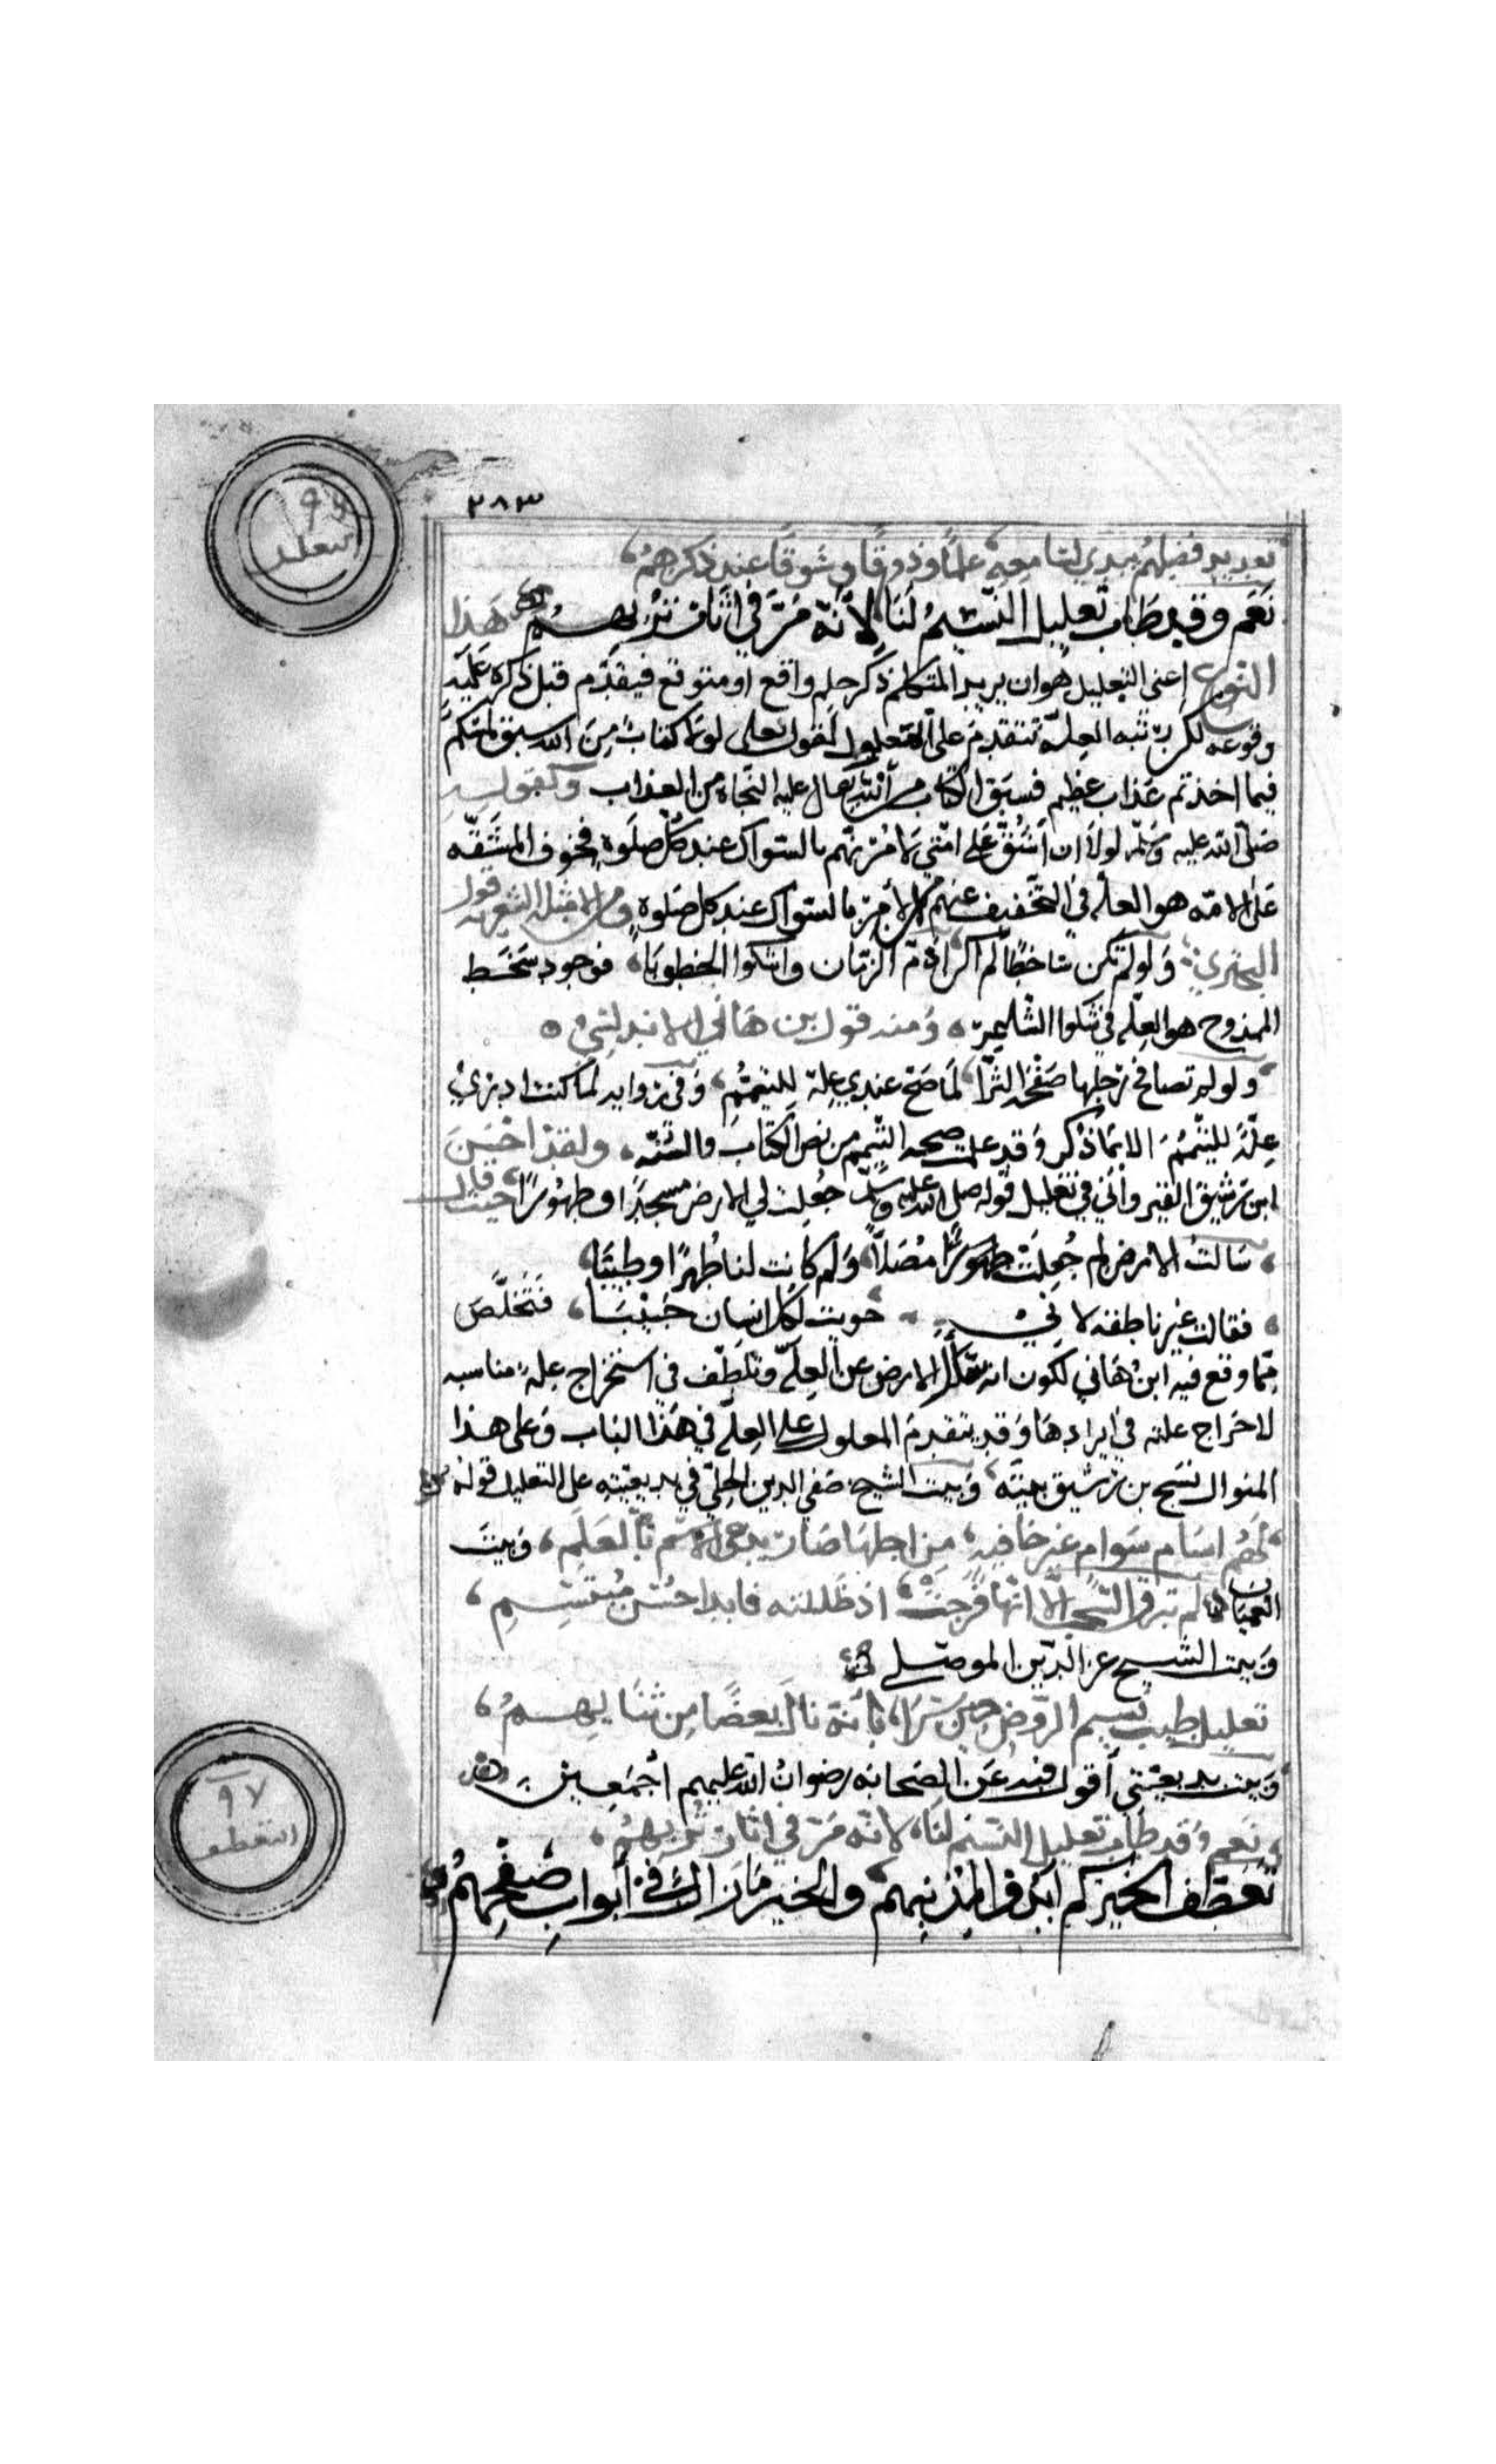 ٢٨٣
تعديد فضلهم يبدي لسامعه علمًا وذوقًا وشوقًا عند ذكرهم
نَعَم وقد طاب تعليل النسيم لنا لأنّه مَرّ في اثار تُربهم هذا
النوع اعني التعليل هو ان يريد المتكلم ذكر حكم واقع او متوقع فيقدّم قبل ذكره علة
وقوعه لكن رتبه العلّه تتقدم على المعلول كقوله تعلى لولا كتابٌ مِنَ الله سبق لمسّكم
فيما اخذتم عذاب عظيم فسبق الكتاب من الله تعالى عليه النجاه من العذاب وكقوله
صلى الله عليه وسلم لولا ان اشقّ على امتي لامرتهم بالسواك عند كل صلوة فخوف المشقّه
على الامّه هو العله في التخفيف عنهم من الامر بالسواك عند كل صلوة ومن الامثله الشعريه قول
البحتري ولو لم تكن ساخطًا لم اكن اذمّ الزمان واشكوا الخطوبا فوجود سَخَط
الممدوح هو العلّه في شكوا الشاعر ومنه قول بن هَاني الاندلسي
ولو لم تصافح رجلها صَفْحَة الثرا لَما صحّ عندي عِلة لِلتيمّم وفي زوايد لما كنت ادري
عِلّةً للتيمُّم الا بما ذكر وقد علمت صحه التيمم من نص الكتاب والسنّه ولقد احْسَنَ
ابن رشيق القيرواني في تعليل قوله صلى الله عليه وسلم جُعِلت لي الارض مسجدًا وطهورًا حيث قال
سَالتُ الارض لم جُعِلَتْ مُصَلّاً وَلم كانت لنا طُهرًا وطيبًا
فقالت غير ناطقه لاني حويت لكل انسان حَبيْبًا فتَخَلّصَ
مِمّا وقع فيه ابن هَاني لكون انه سَال الارض عن العِلّه وتلطّف في استخراج علة مناسبه
لا حَراج عليه في ايرادهَا وقد يتقدم المعلول على العِلّه في هَذا الباب وَعلى هذا
المنوال نسَج بن رشيق بيتَه وبَيت الشيخ صَفي الدين الحِلّي في بديعيته على التعليل قوله
لَهُم اسَامٍ سَوامٍ غير خافيه مِن اجلها صَار يدعى الاسم بالعَلَمِ وَبيت
العميان لم تبرق السّحب الّا انّها فرحت اذ ظللته فابدا حُسن مُبتَسِمِ
وَبيت الشيخ عز الدين الموصلي
تعليل طيب نَسيم الروض حين سَرَا بأنّه نال بَعضًا مِن ثَنَايهِمُ
وَبيت بديعيتي أقول فيه عَن الصَحابه رضوانُ الله عليهم أجمَعين
نَعم وقد طاب تعليل النسيم لنَا لانّه مَرّ في اثار تُربهم
تعطف الخير كم ابدوا لمذنبهم والخير مَا زال في أبواب صَفحهمُ
٩٦
التعليل
٩٧
التعطف